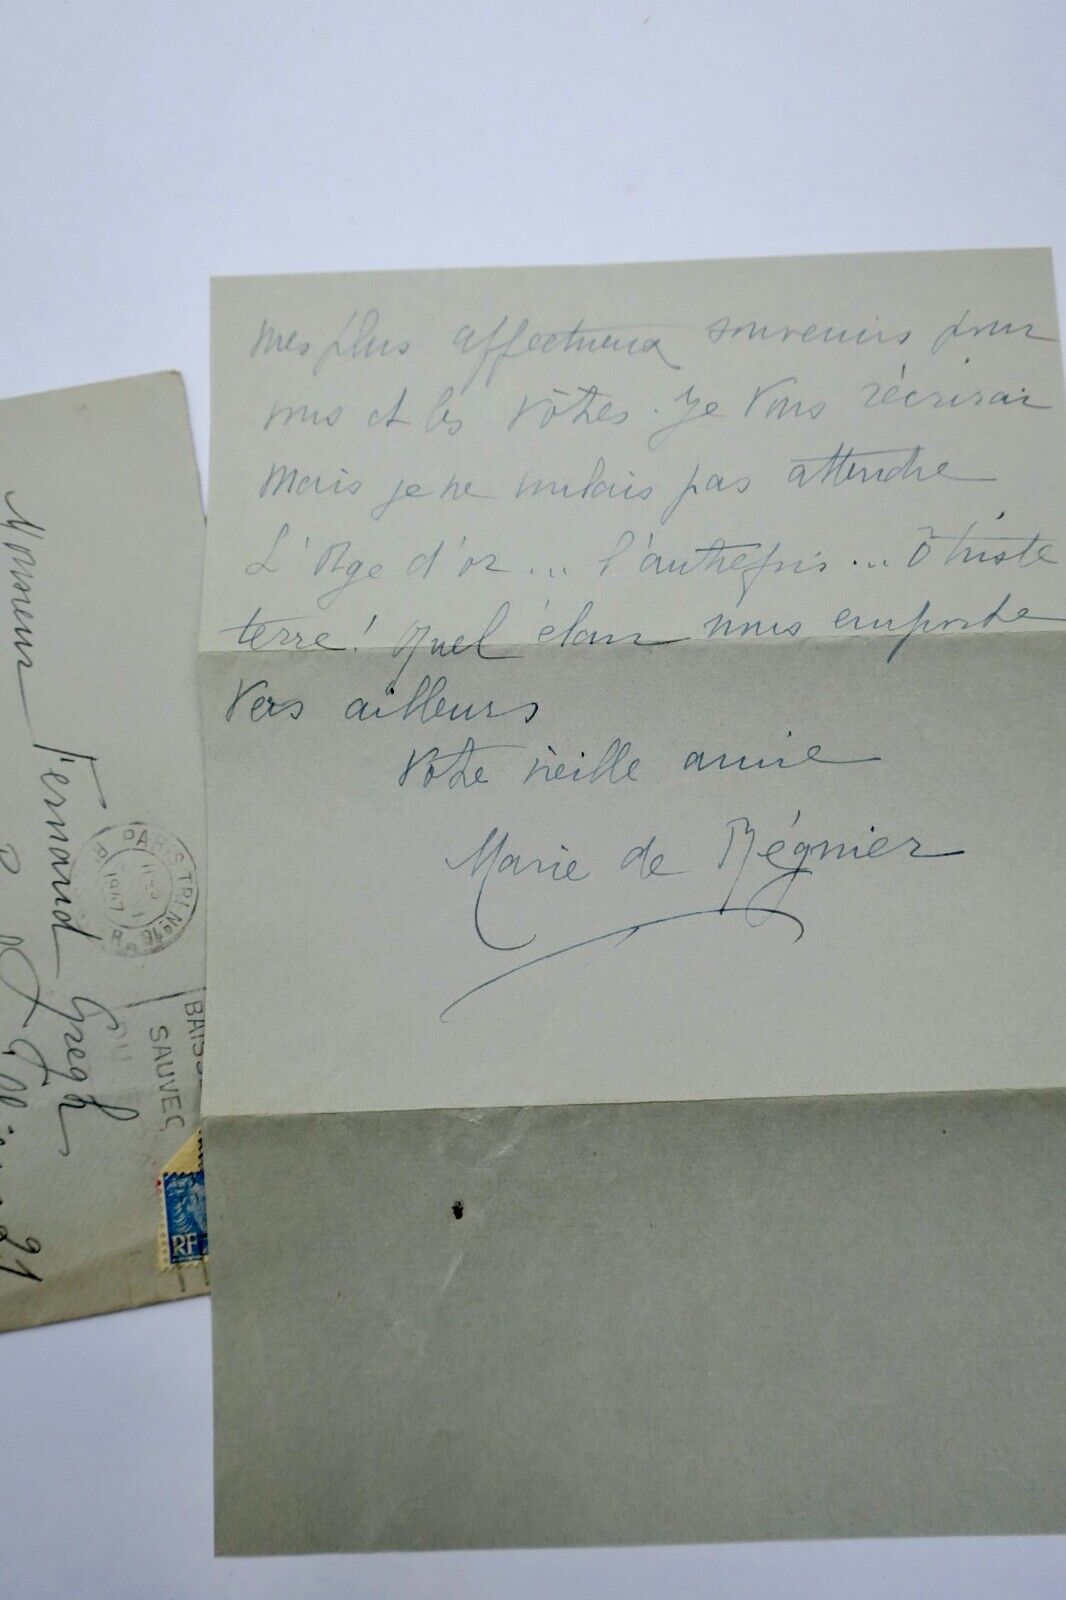 mes plus affectueux souvenirs pour
vous et les vôtres. Je vous récrirai
mais je ne voulais pas attendre
L'Age d'or... l'autrefois... ô triste
terre! Quel élan nous emporte
vers ailleurs
Votre vieille amie
Marie de Régnier
Monsieur Fernand Gregh
PARIS TRI Nº
1947
BAISS
SAUVEG
RF